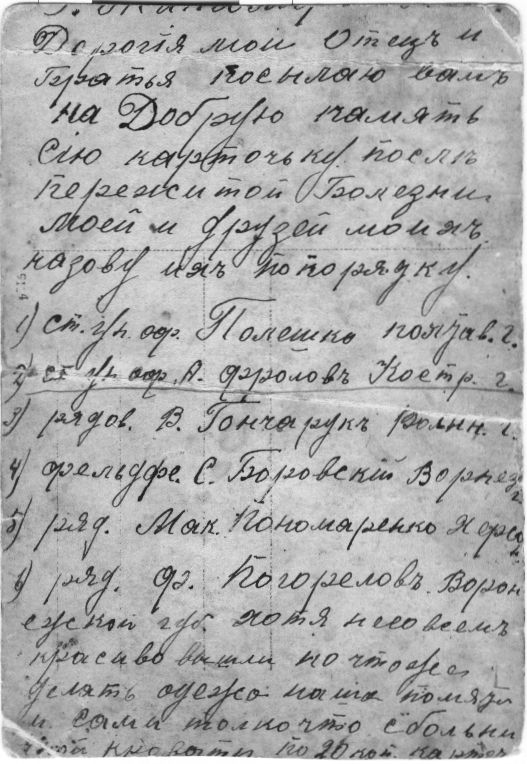 Дорогія мои Отецъ и
братья посылаю вамъ
на Добрую память
Сію карточьку послѣ
пережитой Болезни
моей и друзей моихъ
назову ихъ по порядку.
1) ст. ун. оф. Полешко полтав. г.
2) ст. ун. оф. А. Фроловъ Костр. г.
3) рядов. В. Гончарукъ волын. г.
4) фельдфе. С. Боровскій Воронеж
г.
5) ряд. Мак. Пономаренко Херсо
н.
6) ряд. Ф. Погореловъ. Ворон
ежской губ. хотя несовсемъ
красиво вышли но чтоже
делать одежа наша помята
и сами толкочто с больни
кровати по 20 коп. карточ